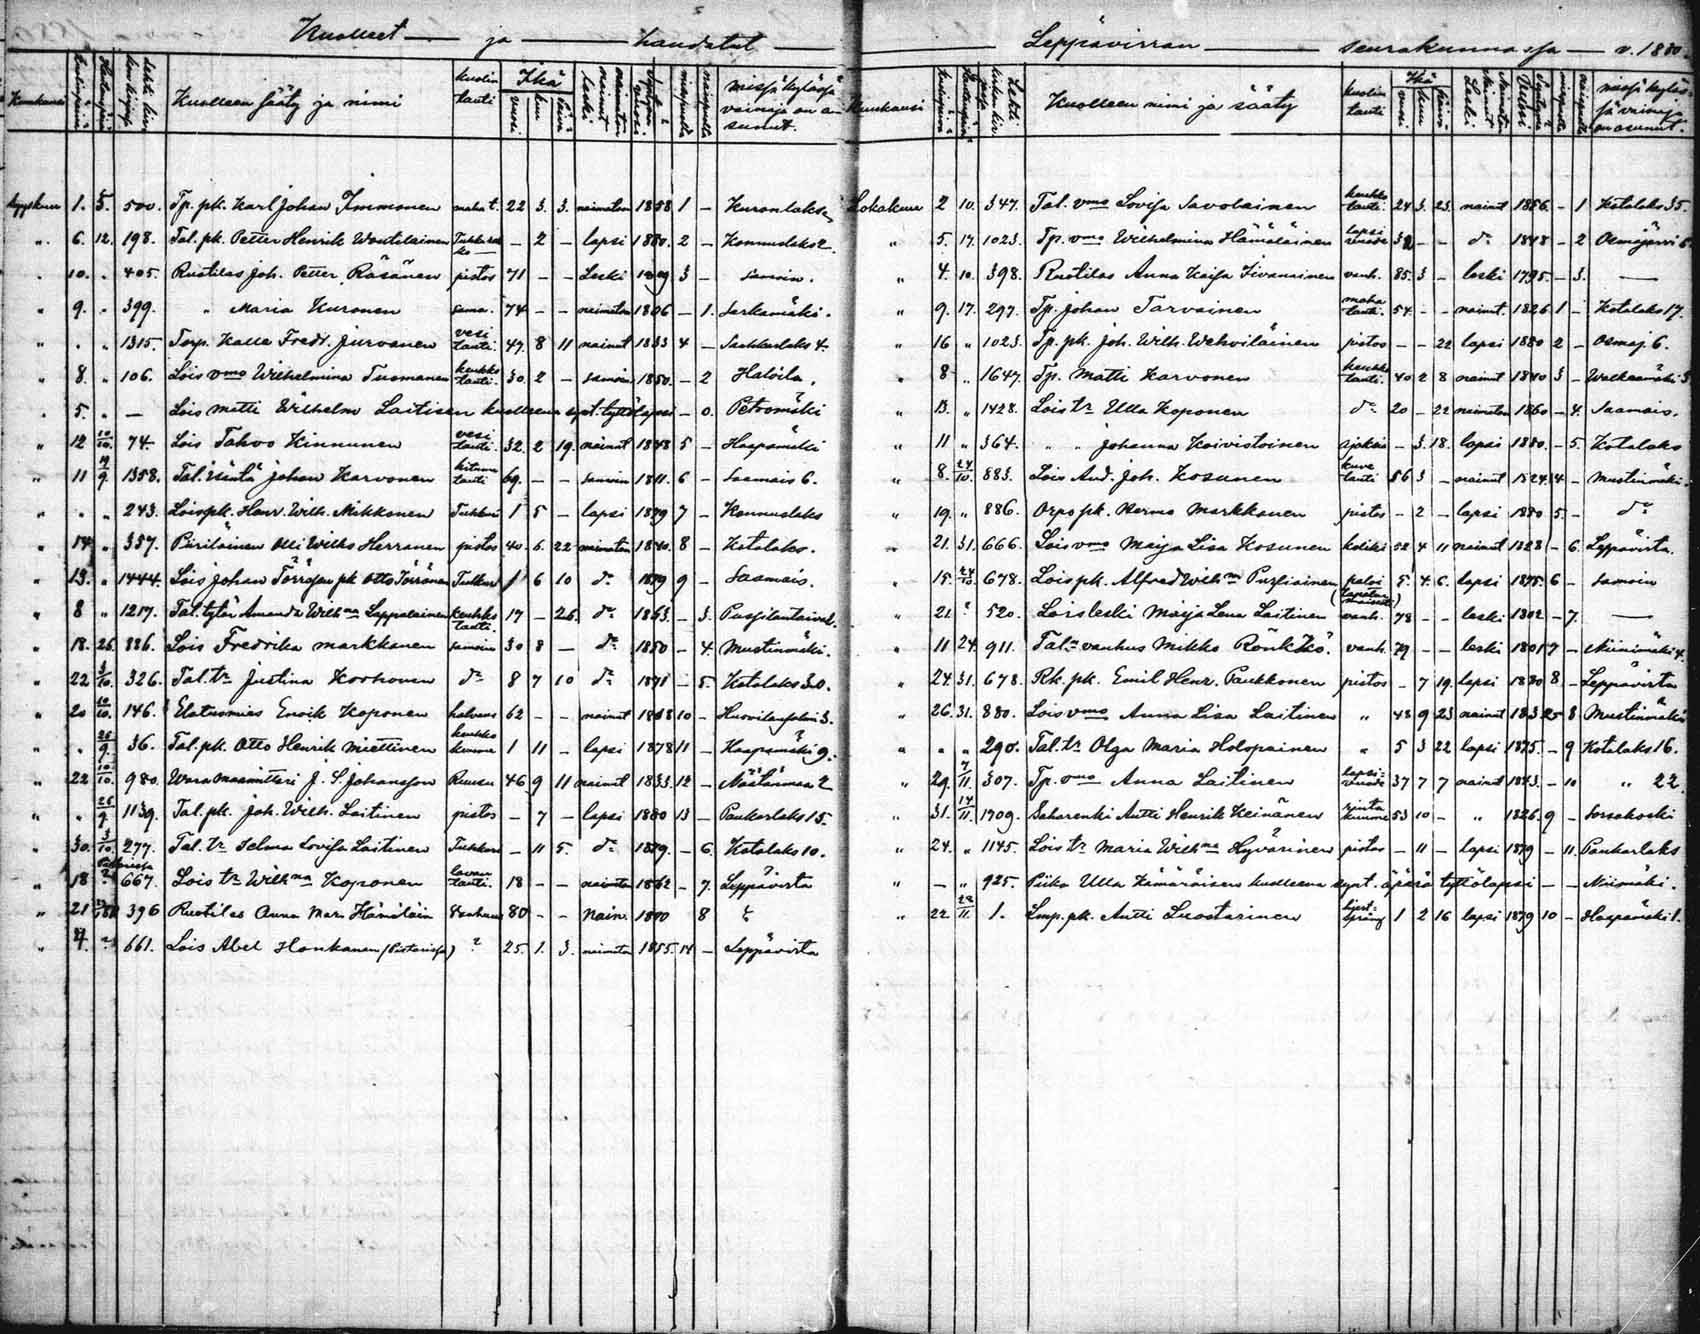 Kuolleet ja haudatut
Kuukausi Kuolleen sääty ja nimi kuolin tauti Ikä vuosi kuu päivä naimaton nainut leski miespuolta vaimopuolta missä kylässä vainaja on asunut.
Syyskuu 1. 5. 500. Tp. pk. Karl Johan Immonen maha t. 22 3. 3. naimaton 1858 1 – Kuronlaks
„ 6. 12. 198. Tal. pk. Petter Henrik Woutilainen – 2 – lapsi 1880. 2 – Konnuslaks 2.
„ 10. „ 405. Ruotilas Joh. Petter Räsänen pistos 71 – – Leski 1809 3 – samoin.
„ 9. „ 399. „ Maria Kuronen sama. 74 – – naimaton 1806 – 1. Sarkamäki.
„ „ „ 1315. Torp. Kalle Fredr. Jurvanen vesi tauti. 47 8 11 nainut 1833 4 – Sarkkarlaks 4.
„ 8. „ 106. Lois vmo Wilhelmina Tuomanen keuhko tauti. 30. 2 – samoin 1850. – 2 Halola.
„ 5. „ – Lois Matti Wilhelm Laitisen kuolleena synt. tyttölapsi – 0. Petromäki
„ 12 10/10. 74. Lois Tahvo Kinnunen vesi tauti. 32. 2 19. nainut 1848 5 – Haapamäki
„ 11 19/9. 1358. Tal. isäntä Johan Karvonen kitumatauti 69. – – samoin 1811. 6 – Saamais 6.
„ „ „ 243. Lois pk. Henr. Wilh. Mikkonen Tuhkuri 1 5 – lapsi 1879 7 – Konnuslaks
„ 14 „ 357. Piirilainen Olli Wilho Herranen pistos 40. 6. 22 naimaton 1840. 8 – Kotalaks.
„ 13. „ 1444. Lois Johan Törrösen pk Otto Törrönen Tuhkuri 1 6 10 do. 1879 9 – Saamais.
„ 8 „ 1217. Tal. tytär Amanda Wilhna Lappalainen keuhko tauti. 17 – 26. do. 1863. – 3.
„ 18. 26. 886. Lois Fredrika Markkanen samoin 30 8 – do. 1850 – 4. Mustinmäki.
„ 22 3/10. 326. Tal. tr Justina Korhonen do 8 7 10 do. 1871 – 5. Kotalaks 30.
„ 20 10/10. 146. Elatusmies Enoik Koponen halvaus 62 – – nainut 1818 10 –
„ „ 26/9. 36. Tal. pk. Otto Henrik Miettinen keuhko kuume 1 11 – lapsi 1878 11 – Haapamäki 9.
„ 22 10/10. 980. Wara Maamittari J. S. Johansson Ruusu 46 9 11 nainut 1833. 12 – Näätänmaa 2
„ „ 26/9. 1139. Tal. pk. Joh. Wilh. Laitinen pistos – 7 – lapsi 1880 13 – Paukarlaks 15.
„ 30. 3/10. 277. Tal. tr Selma Lovisa Laitinen Tuhkuri – 11 5. do. 1879. – 6. Kotalaks 10.
„ 18 667. Lois tr Wilhna Koponen lavantauti. 18 – – naimaton 1862 – 7. Leppävirta
„ 21 396 Ruotilas Anna Mar. Hämäläin Vanhuus 80 – – Nain. 1800 8
„ 4. ? 661. Lois Abel Honkanen (Pietarissa) ? 25. 1. 3. naimaton 1855. 14 – Leppävirta
Leppävirran seurakunnassa v. 1880.
Kuukausi Kuolleen nimi ja sääty kuolin tauti Ikä vuosi kuu päivä Leski missä kylässä vainaja on asunut.
Lokakuu 2 10. 347. Tal. vmo Lovisa Savolainen keuhko tauti. 24 3. 23. nainut 1856. – 1 Kotalaks 35.
„ 5. 17. 1023. Tp. vmo Wilhelmina Hämäläinen lapsi vuode 32 – – do. 1848 – 2 Osmajärvi 6.
„ 4. 10. 398. Ruotilas Anna Kaisa Iivanainen vanh. 85. 3 – leski 1795. – 3. –
„ 9. 17. 297. Tp. Johan Tarvainen maha tauti. 54 – – nainut. 1826 1 – Kotalaks 17.
„ 16 „ 1023. Tp. pk. Joh. Wilh. Wehviläinen pistos – – 22 lapsi 1880 2 – Osmaj. 6.
„ 8 „ 1647. Tp. Matti Karvonen keuhko tauti. 40 2 8 nainut 1840 3 –
„ 13. „ 1428. Lois tr Ulla Koponen do. 20 – 22 naimaton 1860 – 4. Saamais.
„ 11 „ 364. „ „ Johanna Koivistoinen ajoksia – 3 18. lapsi 1880. – 5. Kotalaks
„ 8. 24/10. 883. Lois And. Joh. Kosunen tauti 56 3 – nainut 1824. 4 – Mustinmäki.
„ 19. „ 886. Orpo pk. Hermo Markkanen pistos – 2 – lapsi 1880 5. – do
„ 21. 31. 666. Lois vmo Maija Lisa Kosunen koliki 52 4 11 nainut 1828 – 6. Leppävirta.
„ 15. 24/10. 678. Lois pk. Alfred Wilhm Pursiainen palo (tapaturmaisesti) 5. 4. 6. lapsi 1875 6 – samoin
„ 21. ? 520. Lois leski Maija Lena Laitinen vanh. 78 – – leski 1802 – 7. –
„ 11 24. 911. Tal. vanhus Mikko Rönkkö. vanh. 79 – – leski 1801 7 – Niinimäki 4.
„ 24. 31. 678. Rk. pk. Emil Henr. Paukkonen pistos – 7 19. lapsi 1880 8 – Leppävirta
„ 26. 31. 880. Lois vmo Anna Lisa Laitinen „ 48 9 23 nainut 8 Mustinmäki
„ „ „ 290. Tal. tr Olga Maria Holopainen „ 5 3 22 lapsi 1875. – 9 Kotalaks 16.
„ 29. 7/11. 307. Tp. vmo Anna Laitinen lapsi-vuode 37 7 7 nainut 1843 – 10 „ 22.
„ 31. 14/11. 1709. Antti Henrik Keinänen rinta kuume 53 10 – „ 1826. 9 – Sorsakoski
„ 24. „ 1145. Lois tr Maria Wilhna Hyvärinen pistos – 11 – lapsi 1879 – 11. Paukarlaks
„ – „ 925. Piika Ulla Kämäräisen kuolleena synt. äpärä tyttölapsi – – Niimäki.
„ 22 22/11. 1. Lmp. pk. Antti Luostarinen 1 2 16 lapsi 1879 10 – Haapamäki 1.